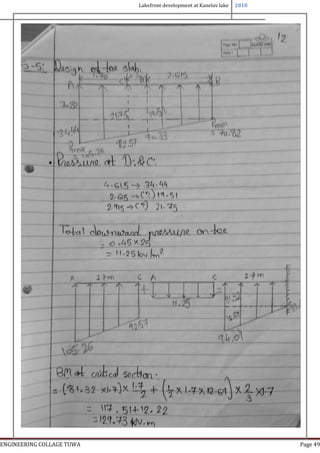 Lakefront development at Kanelav lake 2018
12
Design of toe slab.
A B
2.615
70.82
34.44
2175
19.51
Pmax
105.26
9257
90.33
Pmin
= 70.82
• Pressure at D & C:
4.615 → 34.44
2.615 → (?) 19.51
2.915 → (?) 21.75
Total downward pressure on toe
= 0.45 × 25
= 11.25 kN/m²
A 1.7m C A C 1.7m
+ =
11.25
9257
105.26
94.01
BM at critical section.
= (81.32 × 1.7) × 1.7/2 + (1/2 × 1.7 × 12.69) × 2/3 × 1.7
= 117.51 + 12.22
= 129.73 kN.m
ENGINEERING COLLAGE TUWA Page 49